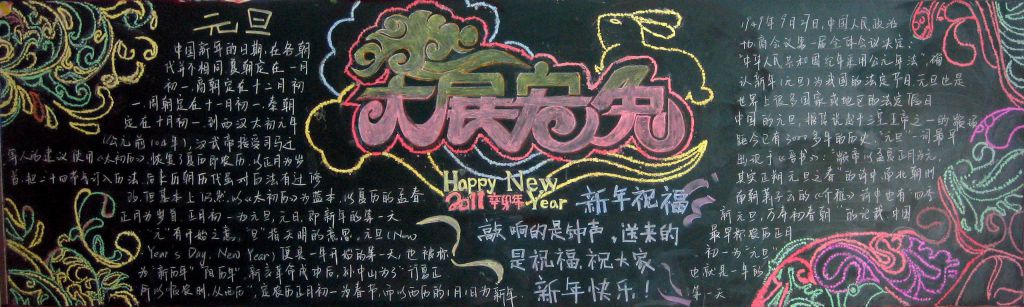 元旦
中国新年的日期,在各朝
代并不相同.夏朝定在一月
初一.商朝定在十二月初
一.周朝定在十一月初一.秦朝
定在十月初一.到西汉太初元年
(公元前104年),汉武帝接受司马迁
等人的建议使用《太初历》,恢复了夏历即农历,以正月为岁
首,把二十四节气订入历法.后来历朝历代虽对历法有过修
改,但基本上仍然以《太初历》为蓝本,以夏历的孟春
正月为岁首,正月初一为元旦,元日,即新年的第一天
元"有开始之意,"旦"指天明的意思.元旦(New
Year's Day, New Year)便是一年开始的第一天.也被称
为"新历年""阳历年".辛亥革命成功后,孙中山为了"行夏正
所以顺农时,从西历",定农历正月初一为春节,而以西历的1月1日为新年.
大展宏兔
Happy New
2011辛卯年Year
新年祝福
敲响的是钟声,送来的
是祝福,祝大家
新年快乐!
1949年9月27日,中国人民政治
协商会议第一届全体会议决定:
"中华人民共和国纪年采用公元年法",确
认新年1月1日为我国的法定节日.元旦也是
世界上很多国家或地区的法定假日
中国的元旦,据传说起于三皇五帝之一的颛顼
距今已有3000多年的历史."元旦"一词最早
出现于《晋书》:"颛帝以孟夏正月为元,
其实正朔元旦之春"的诗中.南北朝时
南朝萧子云的《介雅》诗中也有"四季
新元旦,万寿初春朝"的记载.中国
最早称农历正月
初一为"元旦"
也就是一年的
第一天